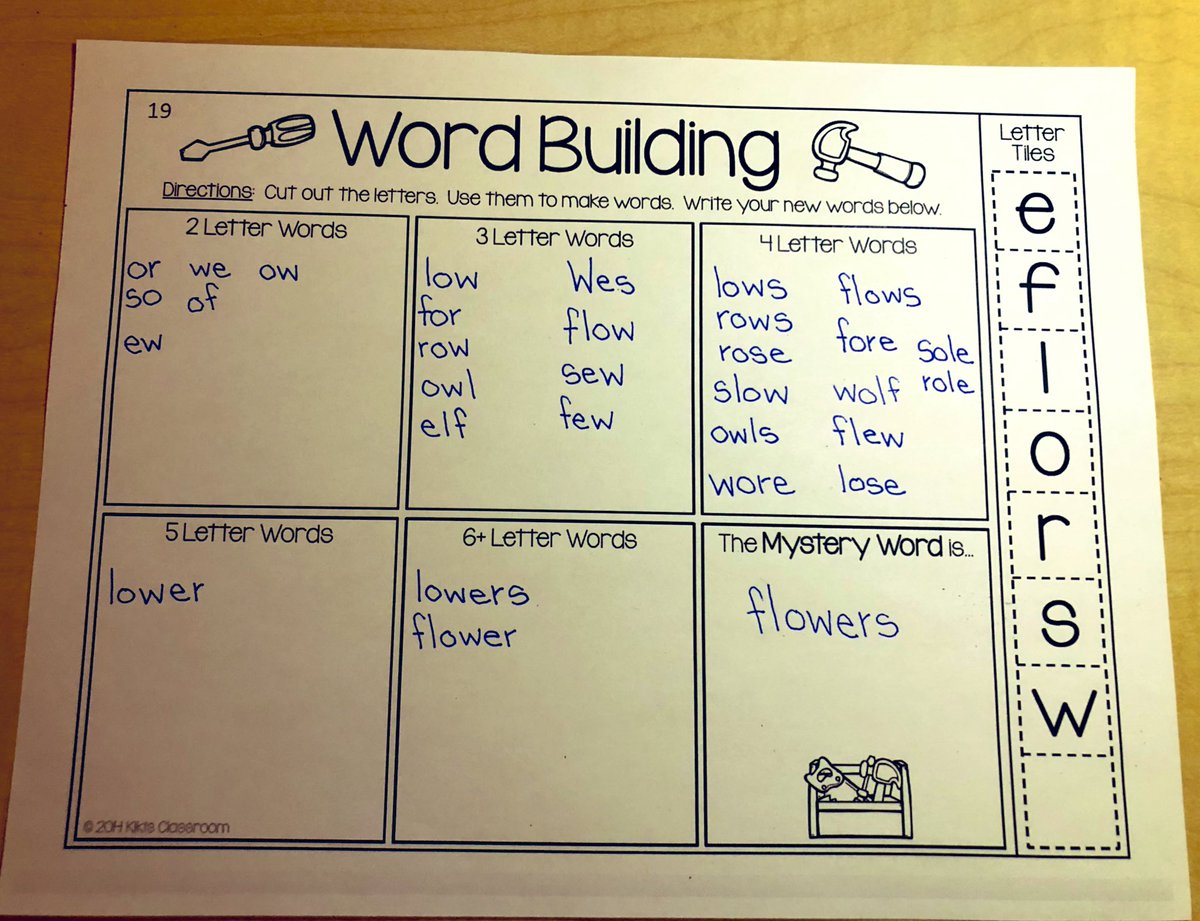 19
Word Building
Directions: Cut out the letters. Use them to make words. Write your new words below.
2 Letter Words
or we ow
so of
ew
3 Letter Words
low Wes
for flow
row
owl sew
elf few
4 Letter Words
lows flows
rows fore sole
rose
slow wolf role
owls flew
wore lose
5 Letter Words
lower
6+ Letter Words
lowers
flower
The Mystery Word is...
flowers
© 2014 Kiki's Classroom
Letter
Tiles
e
f
l
o
r
s
w